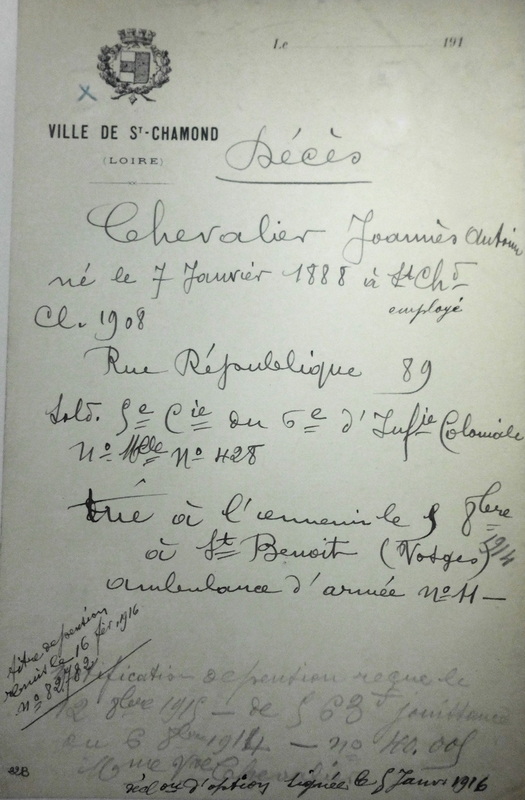 Le 191
VILLE DE ST-CHAMOND
(LOIRE)
Décès
Chevalier Joannès Antoine
né le 7 Janvier 1888 à St Chd
employé
Cl. 1908
Rue République 89
Sold. 5e Cie du 6e d'Infie Coloniale
No Mlle No 428
Tué à l'ennemi le 5 8bre
1914
à St Benoit (Vosges)
ambulance d'armée no 11
titre de pension
remis le 16 fév. 1916
no 82782
Notification de pension reçue le
12 8bre 1915 — de 563 f jouissance
du 6 8bre 1914 — no 40.005
Mme Vve Chevalier
d'option signée le 5 Janvr 1916